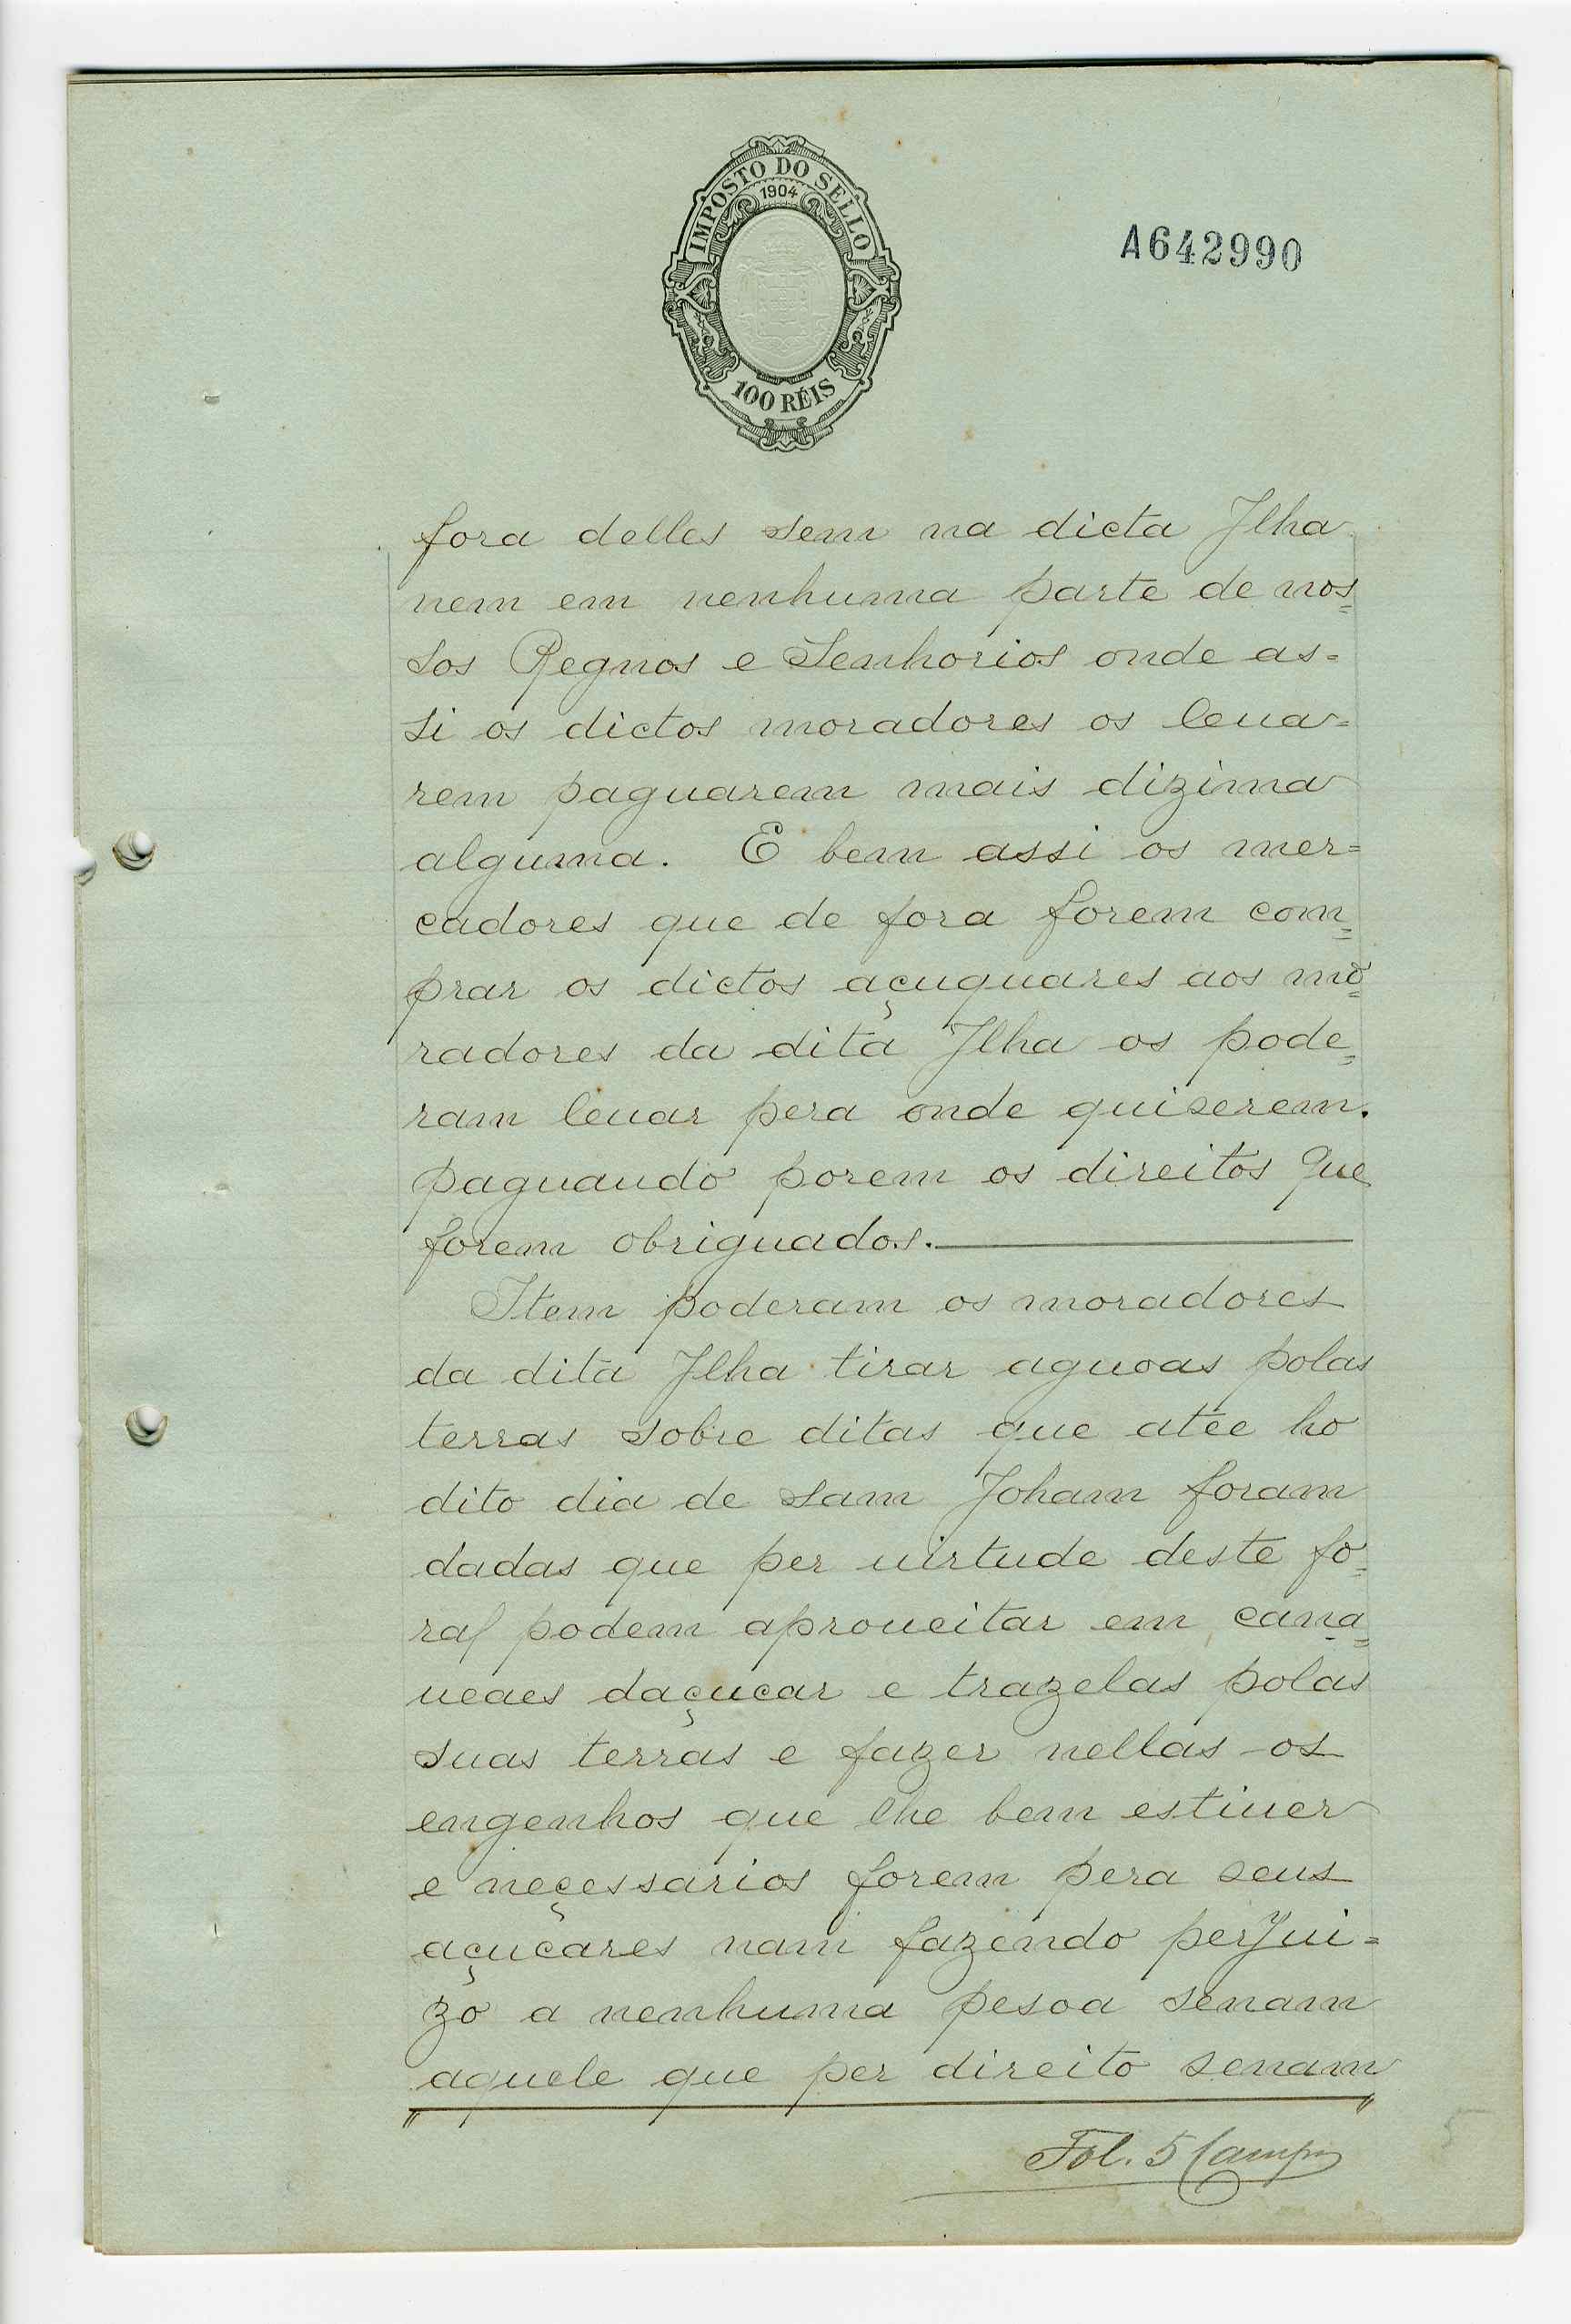 IMPOSTO DO SELLO
1904
100 RÉIS
A642990
fora delles sem na dicta Jlha
nem em nenhuma parte de nos=
sos Regnos e Senhorios onde as=
si os dictos moradores os leua=
rem paguarem mais dizima
alguma. E bem assi os mer=
cadores que de fora forem com=
prar os dictos açuquares aos mo=
radores da dita Jlha os pode=
ram leuar pera onde quiserem.
paguando porem os direitos que
forem obriguados.
Item poderam os moradores
da dita Jlha tirar aguoas polas
terras sobre ditas que atee ho
dito dia de sam Joham foram
dadas que per uirtude deste fo=
ral podem aproueitar em cana=
ueaes daçucar e trazelas polas
suas terras e fazer nellas os
engenhos que lhe bem estiuer
e neçessarios forem pera seus
açucares nam fazendo perJui=
zo a nenhuma pesoa senam
aquele que per direito senam
Fol. 5 Campos
5